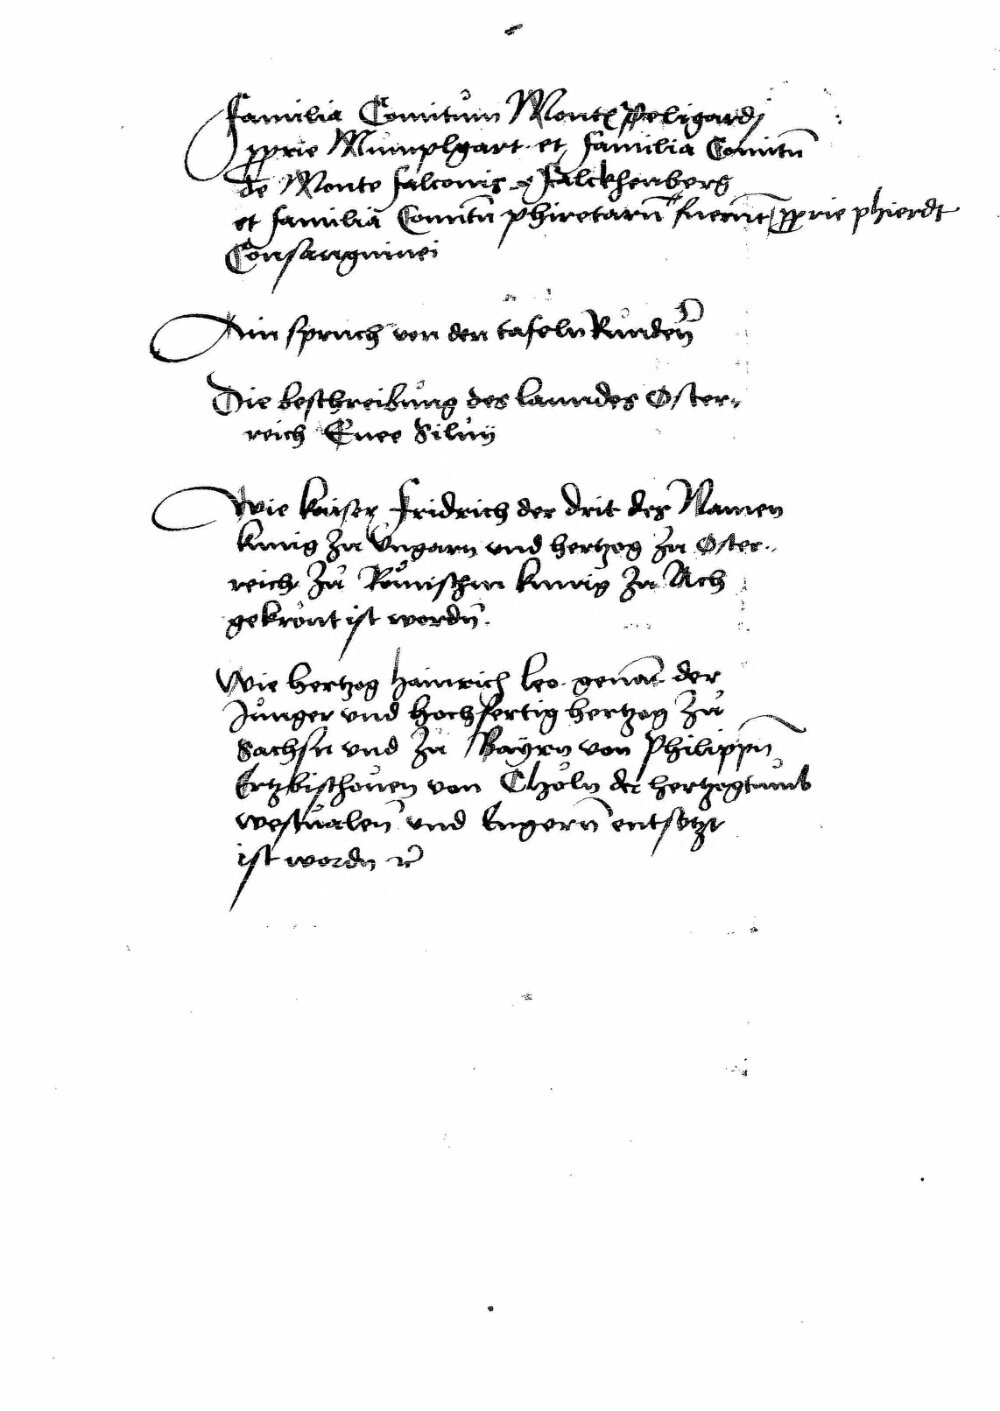 Familia Comitum Montis Peligardj
pprie Mumplgart et familia Comitū
de Monte falconis & Falckhenberg
et familia Comitū phiretarū fuerūt pprie phierdt
Consanguinei
Ain spruch von der tafeln Runden̄
Die beschreibung des lanndes Oster-
reich Enee Siluij
Wie kaiser Fridrich der drit des Namen
kunig zu Vngarn vnd hertzog zu Oster-
reich zu Römischen kunig zu Ach
gekrönt ist wordn̄.
Wie hertzog hainrich leo genāt der
Junger vnd hochfertig hertzog zů
Sachsn vnd zu Bayrn von Philippn̄
Ertzbischouen von Chöln der hertzogtumb
westualen̄ vnd Engern̄ entsetzt
ist wordn rc̄